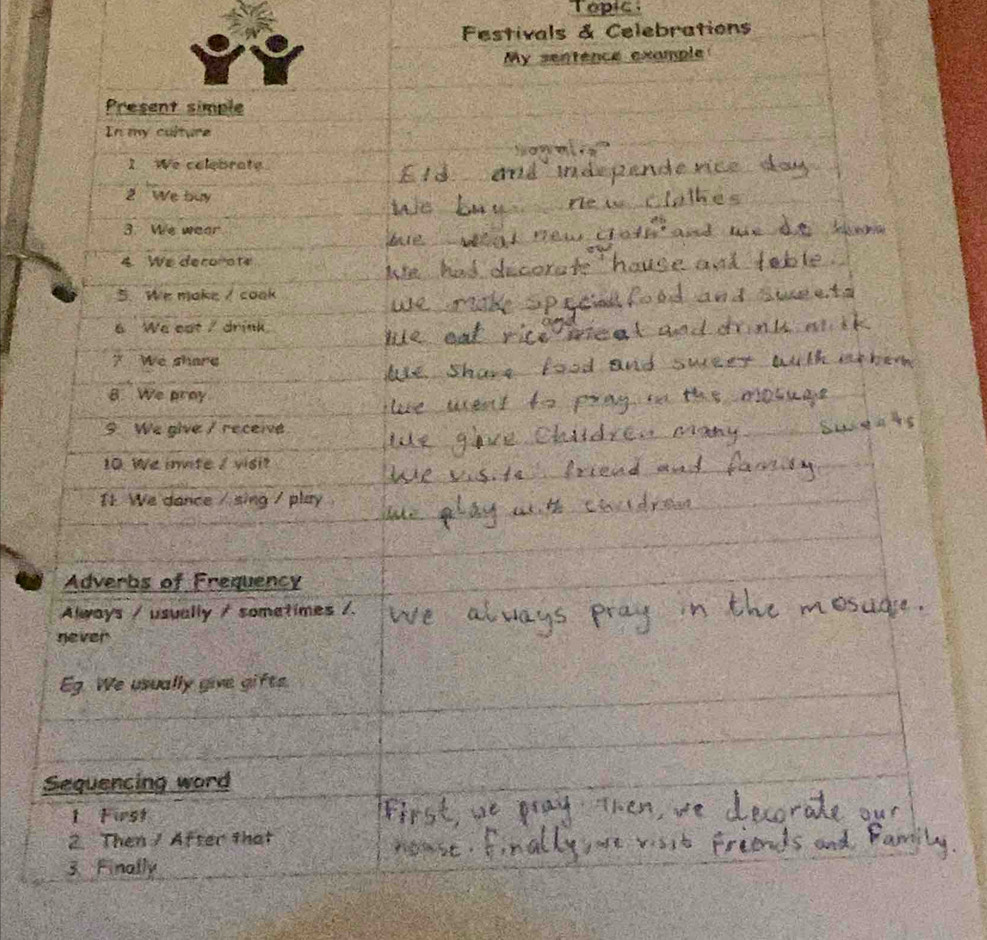 Topic:
Festivals & Celebrations
My sentence example!
Present simple
In my culture
1. We celebrate
Eid and independence day
2 We buy
We buy new clothes
3. We wear
we wear new and we do henna
4. We decorate
We had decorate our house and table.
5. We make / cook
we make special food and sweets
6 We eat / drink
We eat rice and meat and drink milk
7 We share
We share food and sweet with
8 We pray
We went to pray in the mosuqe
9. We give / receive
We give Children many sweats
10. We invite / visit
We visite friend and family
11. We dance / sing / play
We play with children
Adverbs of Frequency
Always / usually / sometimes /.
never
We always pray in the mosuqe.
Eg. We usually give gifts.
Sequencing word
1 First
2. Then / After that
3. Finally
First, we pray. Then, we decorate our
house. Finally, we visit Friends and Family.